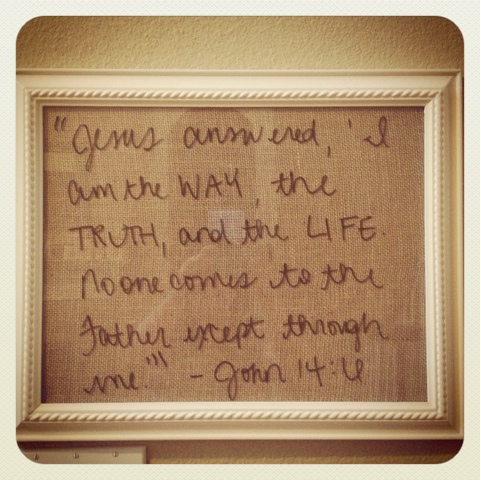 "Jesus answered, 'I
am the WAY, the
TRUTH, and the LIFE.
No one comes to the
Father except through
me.'" - John 14:6